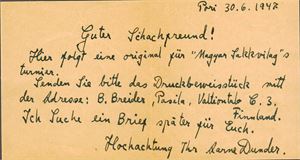 Pori 30.6.1947
Guter Schachfreund!
Hier folgt eine original für "Magyar Sakkvilág"s
turnier.
Senden Sie bitte das Druckbeweisstück mit
der Adresse: B. Breider, Pasila, Valtiontalo C. 3.
Finnland.
Ich Suche ein Brief später für Euch.
Hochachtung Ihr Aarne Dunder.